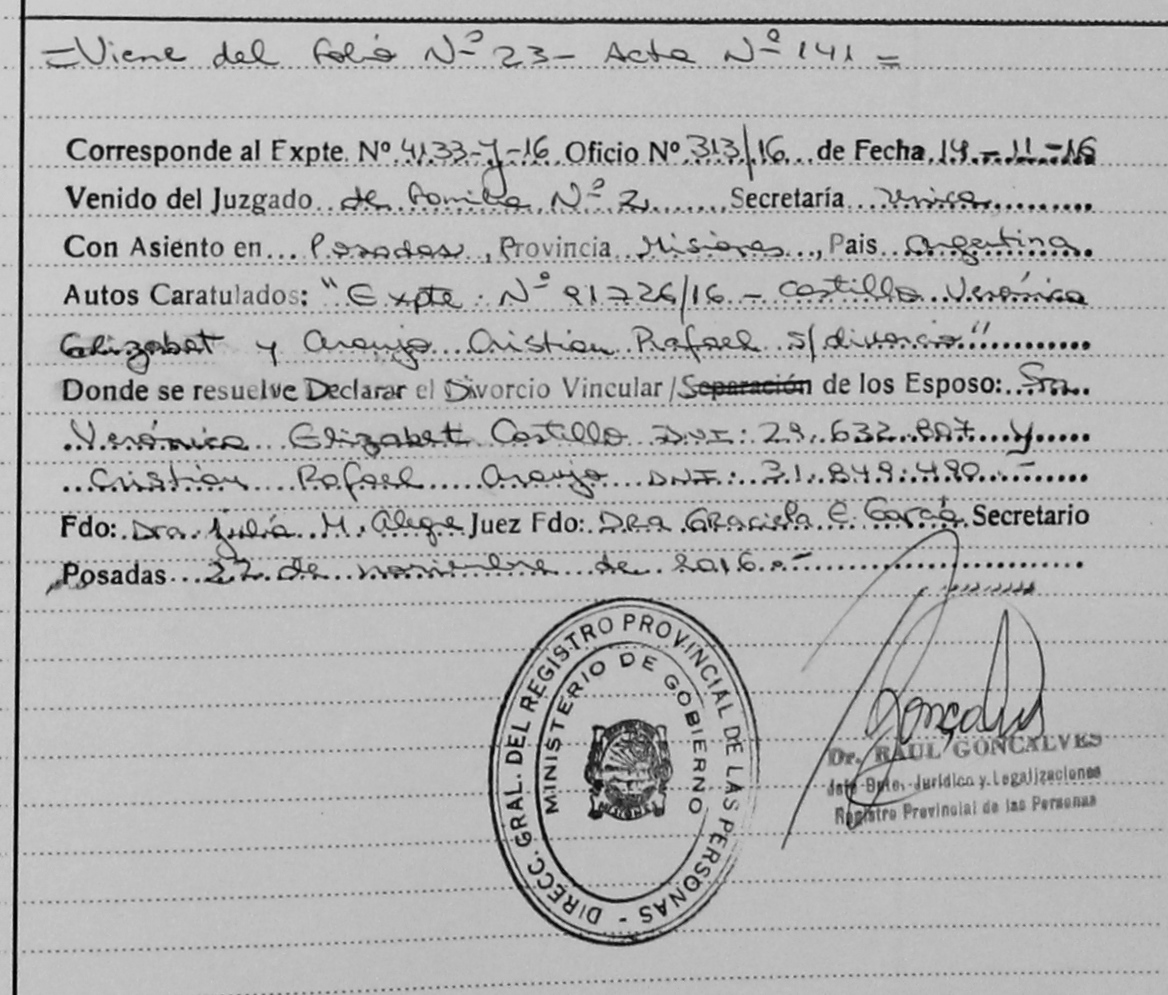 =Viene del folio Nº 23- Acta Nº 141=
Corresponde al Expte. Nº 4133-Y-16 Oficio Nº 313/16 de Fecha 14-11-16
Venido del Juzgado de Familia Nº 2 Secretaría única
Con Asiento en Posadas, Provincia Misiones, Pais Argentina
Autos Caratulados: "Expte. Nº 91726/16 - Castillo Verónica
Elizabet y Araujo Cristian Rafael s/divorcio"
Donde se resuelve Declarar el Divorcio Vincular/Separación de los Esposo: Sra.
Verónica Elizabet Castillo DNI: 29.632.807 y
Cristian Rafael Araujo DNI: 31.849.490.-
Fdo: Dra. Julia M. Alegre Juez Fdo: DRA GRaciela E. García Secretario
Posadas 22 de noviembre de 2016.-
DIRECC. GRAL. DEL REGISTRO PROVINCIAL DE LAS PERSONAS -
MINISTERIO DE GOBIERNO
MISIONES
Dr. RAUL GONCALVES
Jefe Dpto. Jurídico y Legalizaciones
Registro Provincial de las Personas